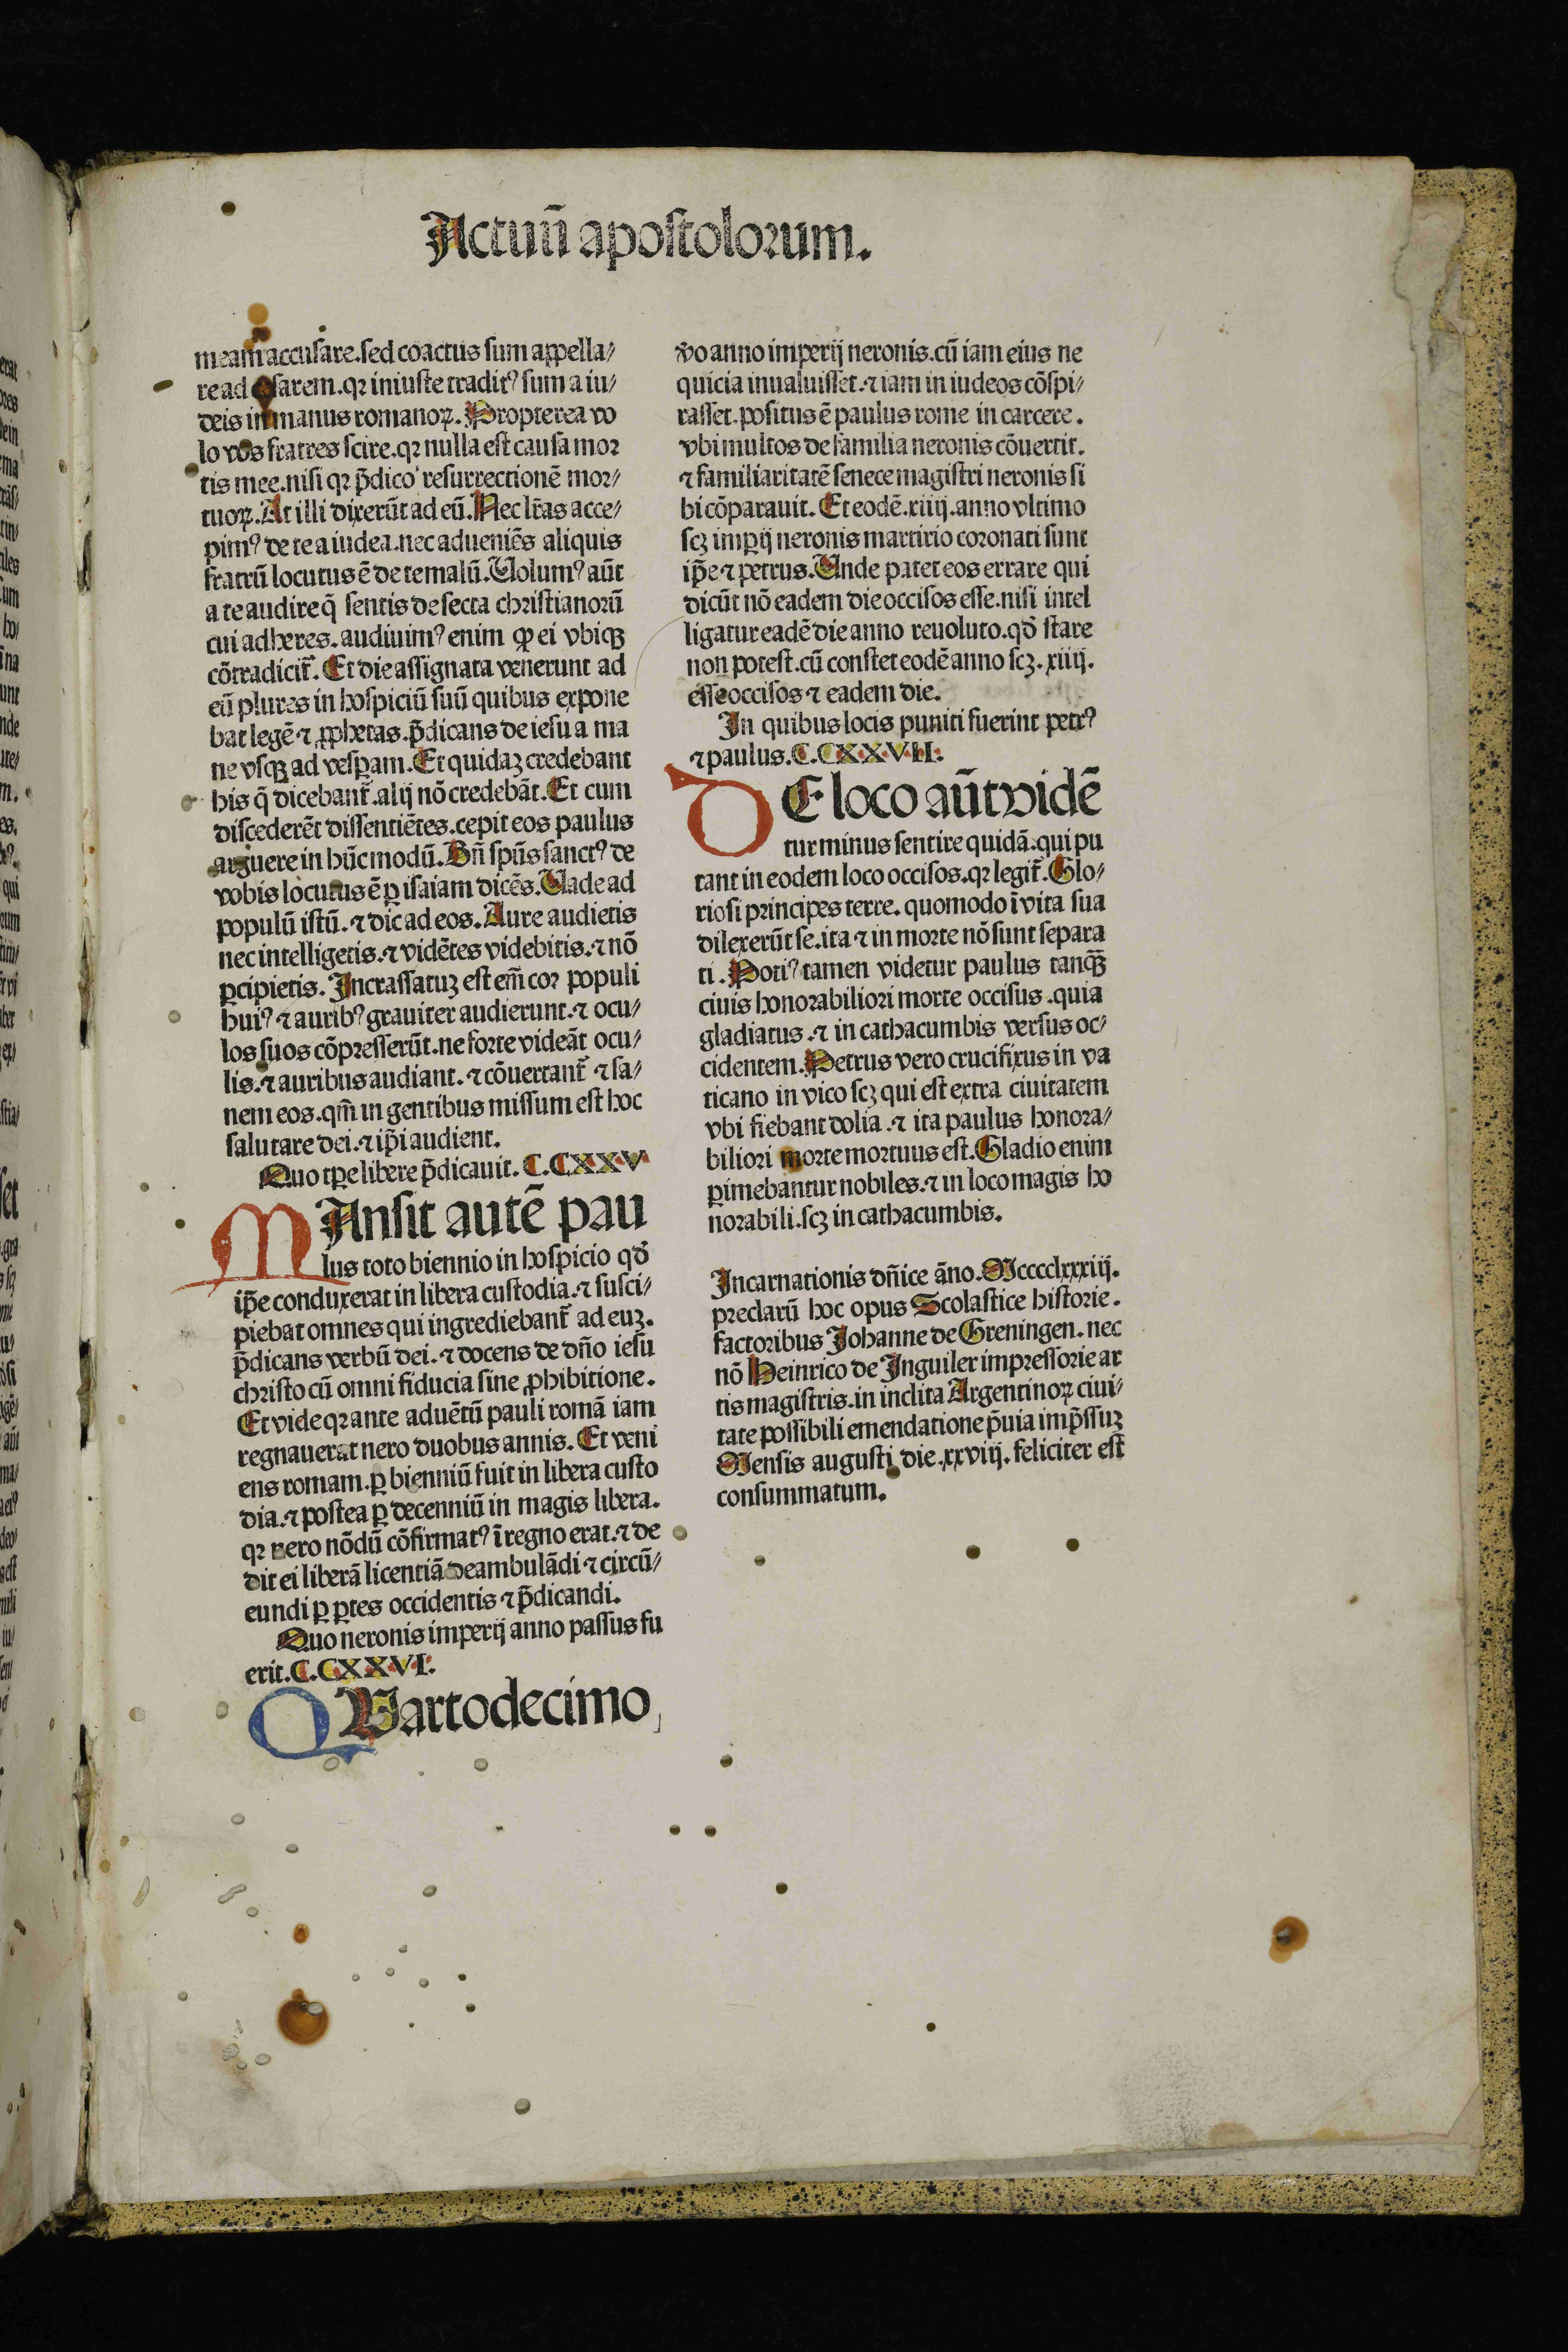 Actuū apostolorum.
meam accusare.sed coactus sum appella⸗
re ad cesarem.qꝛ iniuste traditꝰ sum a iu⸗
deis in manus romanoꝝ. Propterea vo
lo vos fratres scire.qꝛ nulla est causa mor
tis mee.nisi qꝛ p̄dico resurrectionē mor⸗
tuoꝝ. At illi dixerūt ad eū. Nec lr̄as acce⸗
pimꝰ de te a iudea.nec adueniēs aliquis
fratrū locutus ē de te malū. Uolumꝰ aūt
a te audire q̄ sentis de secta christianorū
cui adheres. audiuimꝰ enim ꝙ ei vbiqꝫ
cōtradicit̄. Et die assignata venerunt ad
eū plures in hospiciū suū quibus expone
bat legē ⁊ ꝓphetas.p̄dicans de iesu a ma
ne vsqꝫ ad vesꝑam. Et quidaꝫ credebant
his q̄ dicebant̄. alij nō credebāt. Et cum
discederēt dissentiētes.cepit eos paulus
arguere in hūc modū. Bn̄ spūs sanctꝰ de
vobis locutus ē ꝑ isaiam dicēs. Uade ad
populū istū. ⁊ dic ad eos. Aure audietis
nec intelligetis. ⁊ vidētes videbitis. ⁊ nō
ꝑcipietis. Incrassatuꝫ est em̄ cor populi
huiꝰ ⁊ auribꝰ grauiter audierunt. ⁊ ocu⸗
los suos cōpresserūt.ne forte videāt ocu⸗
lis. ⁊ auribus audiant. ⁊ cōuertant̄ ⁊ sa⸗
nem eos.qm̄ in gentibus missum est hoc
salutare dei. ⁊ ip̄i audient.
Quo tpe libere p̄dicauit. C.CXXV
MAnsit autē pau
lus toto biennio in hospicio qđ
ip̄e conduxerat in libera custodia. ⁊ susci⸗
piebat omnes qui ingrediebant̄ ad euꝫ.
p̄dicans verbū dei. ⁊ docens de dn̄o iesu
christo cū omni fiducia sine ꝓhibitione.
Et vide qꝛ ante aduētū pauli romā iam
regnauerat nero duobus annis. Et veni
ens romam.ꝑ bienniū fuit in libera custo
dia. ⁊ postea ꝑ decenniū in magis libera.
qꝛ nero nōdū cōfirmatꝰ ī regno erat. ⁊ de
dit ei liberā licentiā deambulādi ⁊ circū⸗
eundi ꝑ ꝑtes occidentis ⁊ p̄dicandi.
Quo neronis imperij anno passus fu
erit. C.CXXVI.
QUartodecimo
v̄o anno imperij neronis.cū iam eius ne
quicia inualuisset. ⁊ iam in iudeos cōspi⸗
rasset.positus ē paulus rome in carcere.
vbi multos de familia neronis cōuertit.
⁊ familiaritatē senece magistri neronis si
bi cōparauit. Et eodē.xiiij.anno vltimo
scꝫ imꝑij neronis martirio coronati sunt
ip̄e ⁊ petrus. Unde patet eos errare qui
dicūt nō eadem die occisos esse.nisi intel
ligatur eadē die anno reuoluto.qđ stare
non potest.cū constet eodē anno scꝫ. xiiij.
esse occisos ⁊ eadem die.
In quibus locis puniti fuerint petrꝰ
⁊ paulus. C.CXXVII.
DE loco aūt vidē
tur minus sentire quidā.qui pu
tant in eodem loco occisos.qꝛ legit̄. Glo⸗
riosi principes terre. quomodo ī vita sua
dilexerūt se.ita ⁊ in morte nō sunt separa
ti. Potiꝰ tamen videtur paulus tanqꝫ̄
ciuis honorabiliori morte occisus.quia
gladiatus. ⁊ in cathacumbis versus oc⸗
cidentem. Petrus vero crucifixus in va
ticano in vico scꝫ qui est extra ciuitatem
vbi fiebant dolia. ⁊ ita paulus honora⸗
biliori morte mortuus est. Gladio enim
ꝑimebantur nobiles. ⁊ in loco magis ho
norabili.scꝫ in cathacumbis.
Incarnationis dn̄ice āno. Mcccclxxxiij.
preclarū hoc opus Scolastice historie.
factoribus Johanne de Greningen. nec
nō Heinrico de Inguiler impressorie ar
tis magistris.in inclita Argentinoꝝ ciui⸗
tate possibili emendatione p̄uia imp̄ssuꝫ
Mensis augusti die.xxviij. feliciter est
consummatum.